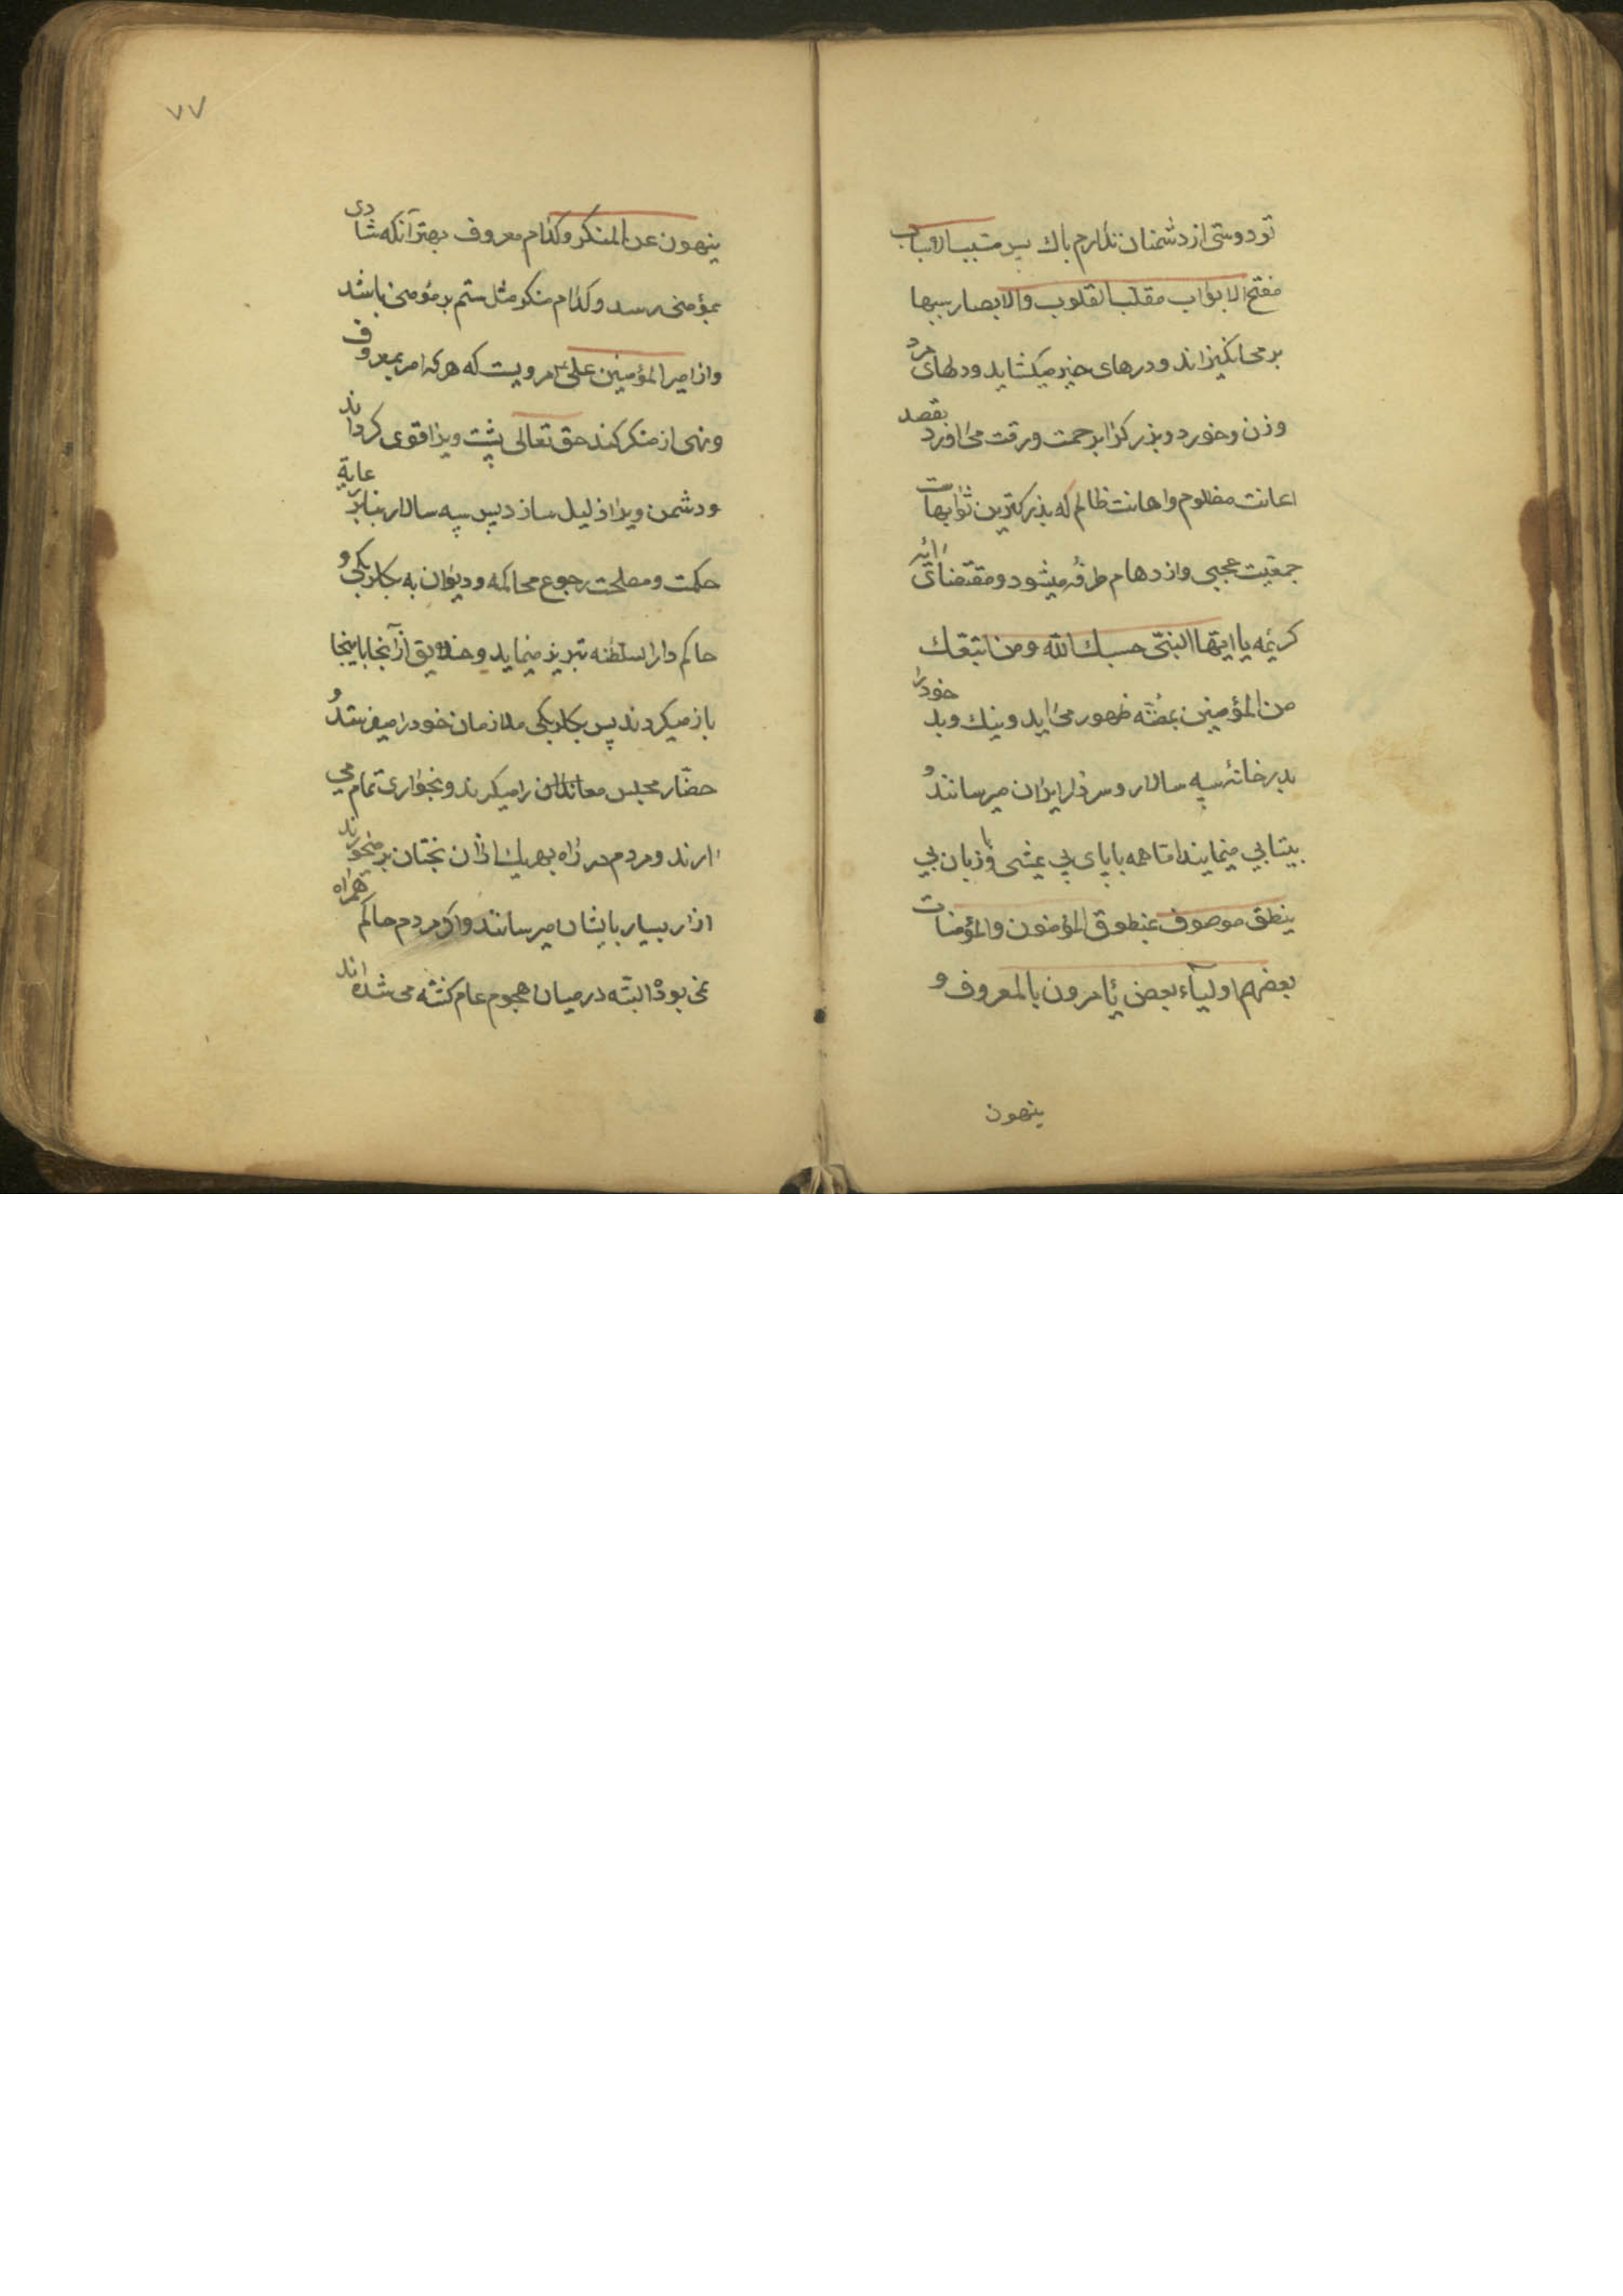 تو دوستی از دشمنان ندارم باك پس مسبب الاسباب
مفتح الابواب مقلب القلوب والابصار سببها
بر می انگیزاند و درهای خیر میکشاید و دلهای مرد
وزن و خورد و بزرکرا برحمت و رقت می اورد بقصد
اعانت مظلوم و اهانت ظالم که بزرکترین ثوابهاست
جمعیت عجبی و ازدهام طرفه میشود و مقتضای آیه
کریمه یا ایها النبی حسبك الله ومن اتبعك
من المؤمنین بمنصه ظهور می اید و نیك و بد خود را
بدرخانهٔ سپه سالار و سردار ایران میرسانند و
بیتابی مینمایند اما همه با پای بی مشی و با زبان بی
ینطق موصوف بمنطوق المؤمنون والمؤمنات
بعضهم اولیآء بعض یٔامرون بالمعروف و
ینهون
٧٧
ینهون عن المنکر وکدام معروف بهتر آنکه شادی
بمؤمنی رسد و کدام منکر مثل ستم بر مؤمنی باشد
و از امیر المؤمنین علی ع مرویست که هر که امر بمعروف
و نهی از منکر کند حق تعالی پشت ویرا قوی کرداند
و دشمن ویرا ذلیل سازد پس سپه سالار بنابر رعایة
حکمت و مصلحت رجوع محاکمه و دیوان به بکلربکی و
حاکم دار السلطنه تبریز مینماید و خلایق از آنجا باینجا
باز میکردند پس بکلربکی ملازمان خود را میفرستد و
حضار مجلس معاندان را میکیرند و بخواری تمام می
ارند و مردم در راه بهریك ازان بختان بر میخورند
ازار بسیار بایشان میرسانند واکر مردم حاکم همراه
نمی بود البته در میان هجوم عام کشته می شده اند